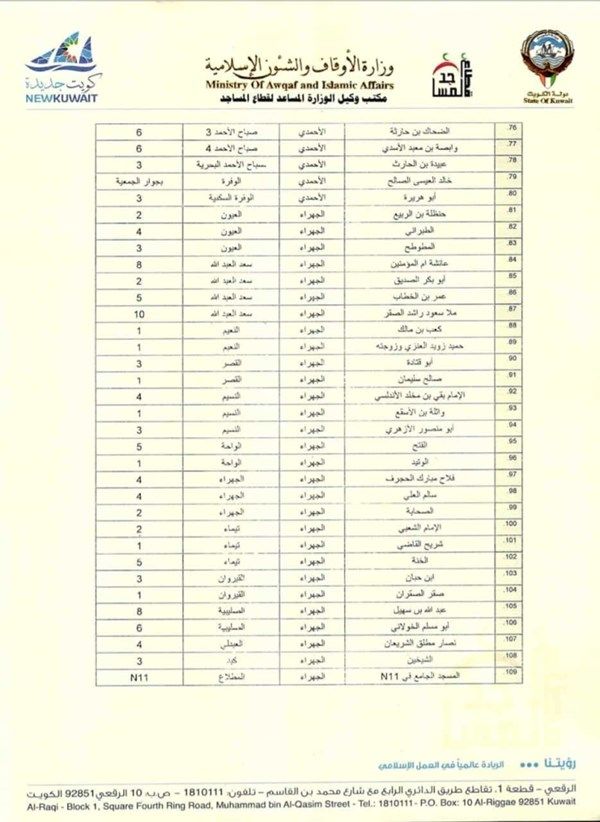 كويت جديدة
NEWKUWAIT
وزارة الأوقاف والشئون الإسلامية
Ministry Of Awqaf and Islamic Affairs
مكتب وكيل الوزارة المساعد لقطاع المساجد
قطاع المساجد
دولة الكويت
State Of Kuwait
76. الضحاك بن حارثة الأحمدي صباح الأحمد 3 6
77. وابصة بن معبد الأسدي الأحمدي صباح الأحمد 4 6
78. عبيدة بن الحارث الأحمدي صباح الأحمد البحرية 3
79. خالد العيسى الصالح الأحمدي الوفرة بجوار الجمعية
80. أبو هريرة الأحمدي الوفرة السكنية 3
81. حنظلة بن الربيع الجهراء العيون 2
82. الطبراني الجهراء العيون 4
83. المطوطح الجهراء العيون 3
84. عائشة ام المؤمنين الجهراء سعد العبد الله 8
85. أبو بكر الصديق الجهراء سعد العبد الله 2
86. عمر بن الخطاب الجهراء سعد العبد الله 5
87. ملا سعود راشد الصقر الجهراء سعد العبد الله 10
88. كعب بن مالك الجهراء النعيم 1
89. حميد زويد العنزي وزوجته الجهراء النعيم 1
90. أبو قتادة الجهراء القصر 3
91. صالح سليمان الجهراء القصر 1
92. الإمام بقي بن مخلد الأندلسي الجهراء النسيم 4
93. واثلة بن الأسقع الجهراء النسيم 1
94. أبو منصور الأزهري الجهراء النسيم 3
95. الفتح الجهراء الواحة 5
96. الوتيد الجهراء الواحة 1
97. فلاح مبارك الحجرف الجهراء الجهراء 4
98. سالم العلي الجهراء الجهراء 4
99. الصحابة الجهراء الجهراء 2
100. الإمام الشعبي الجهراء تيماء 2
101. شريح القاضي الجهراء تيماء 1
102. الجهراء تيماء 5
103. ابن حبان الجهراء القيروان 3
104. صقر الصقران الجهراء القيروان 1
105. عبد الله بن سهيل الجهراء الصليبية 8
106. أبو مسلم الخولاني الجهراء الصليبية 6
107. نصار مطلق الشريعان الجهراء العبدلي 4
108. الشيخين الجهراء كبد 3
109. المسجد الجامع في N11 الجهراء المطلاع N11
رؤيتنا ••• الريادة عالمياً في العمل الإسلامي
الرقعي - قطعة 1. تقاطع طريق الدائري الرابع مع شارع محمد بن القاسم - تلفون: 1810111 - ص.ب: 10 الرقعي 92851 الكويت
Al-Raqi - Block 1, Square Fourth Ring Road, Muhammad bin Al-Qasim Street - Tel.: 1810111- P.O. Box: 10 Al-Riggae 92851 Kuwait